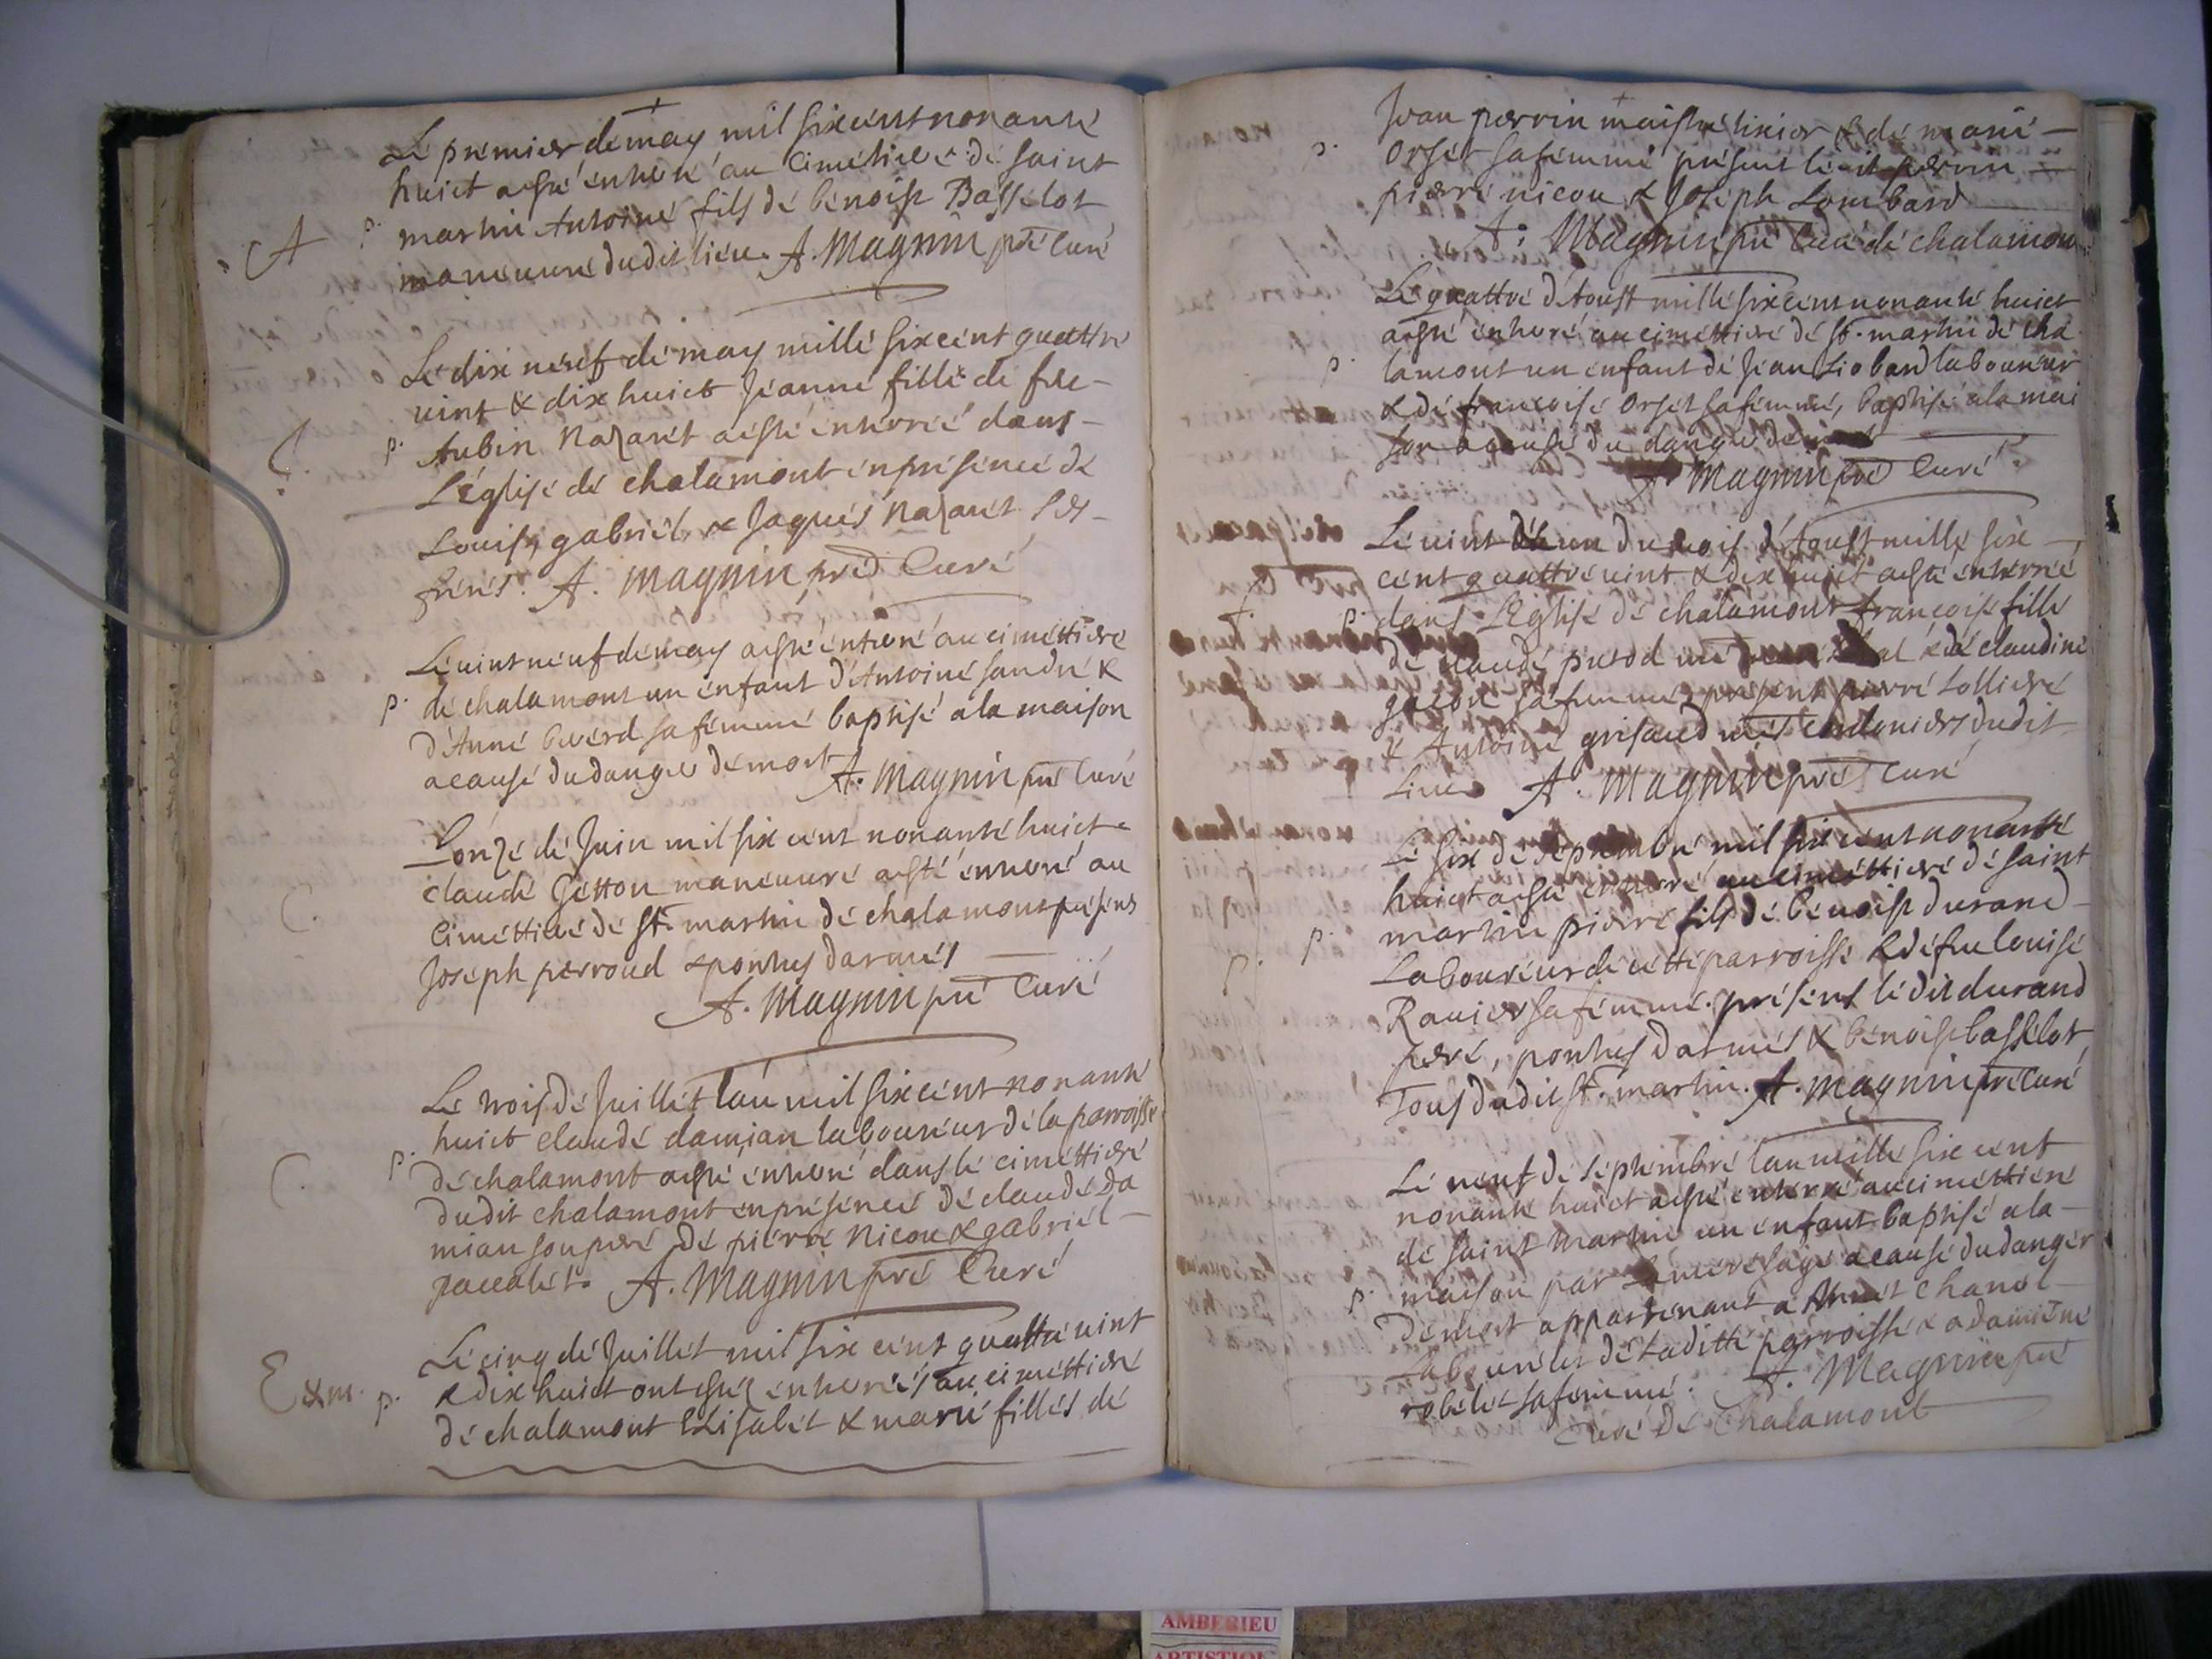 Le premier de may mil six cent nonante
huict a esté enterré au cimetiere de saint
A p. martin Antoine fils de benoist Basselot
maneuvre dudit lieu. A. Magnin pre Curé
Le dix neuf de may mille six cent quattre
vint & dix huict Jeanne fille de feu
p. Aubin Nazaret a esté enterreé dans
L'église de chalamont en présence de
Louis, gabriel & Jaques Nazaret ses
freres. A. Magnin pre Curé
Le vint neuf de may a esté enterré au cimettiere
p. de chalamont un enfant d'Antoine sandre &
d'Anne sa femme baptisé a la maison
a cause du danger de mort A. Magnin pre Curé
L'onze de Juin mil six cent nonante huict
C. claude Getton maneuvre a esté enterré au
cimettiere de St. martin de chalamont présens
Joseph perroud & ponthus darmes
A. Magnin pre Curé
Le trois de Juillet l'an mil six cent nonante
huict claude damian laboureur de la parroisse
C. p. de chalamont a esté enterré dans le cimettiere
dudit chalamont en présence de claude da
mian son pere de pierre Nicou & gabriel
paccalet. A. Magnin pre Curé
Le cinq de Juillet mil six cent quattre vint
Exm. p. & dix huict ont estez enterreés au cimettiere
de chalamont Elisabet & marie filles de
Jean perrin maistre tixier & de marie
p. Orset sa femme présent ledit perrin
pierre nicou & Joseph Lombard
A. Magnin pre Curé de chalamon
Le quattre d'Aoust mille six cent nonante huict
a esté enterré au cimettiere de St. martin de cha
p. lamont un enfant de Jean Liobard laboureur
& de francoise Orset sa femme, baptisé a la mai
son a cause du danger de mort
A. Magnin pre Curé
Le vint & un du mois d'Aoust mille six
cent quattre vint & dix huict a esté enterreé
p. dans L'Eglise de chalamont francoise fille
de claude putod & de claudine
sa femme, présent pierre Lolliere
& Antoine grisaud cordoniers dudit
Lieu A. Magnin pre Curé
Le six de septembre mil six cent nonante
huict a esté enterré au cimettiere de saint
p. martin pierre fils de benoist durand
Laboureur de cette parroisse & de feue louise
Ravier sa femme. présens ledit durand
pere, ponthus darmes & benoist basselot
Tous dudit St. martin. A. Magnin pre Curé
Le neuf de septembre l'an mille six cent
nonante huict a esté enterré au cimettiere
de saint martin un enfant baptisé a la
p. maison par la mere sage a cause du danger
de mort appartenant a chanel
Laboureur de Laditte parroisse & a damiene
robelet sa femme. A. Magnin pre
Curé De Chalamont
AMBERIEU